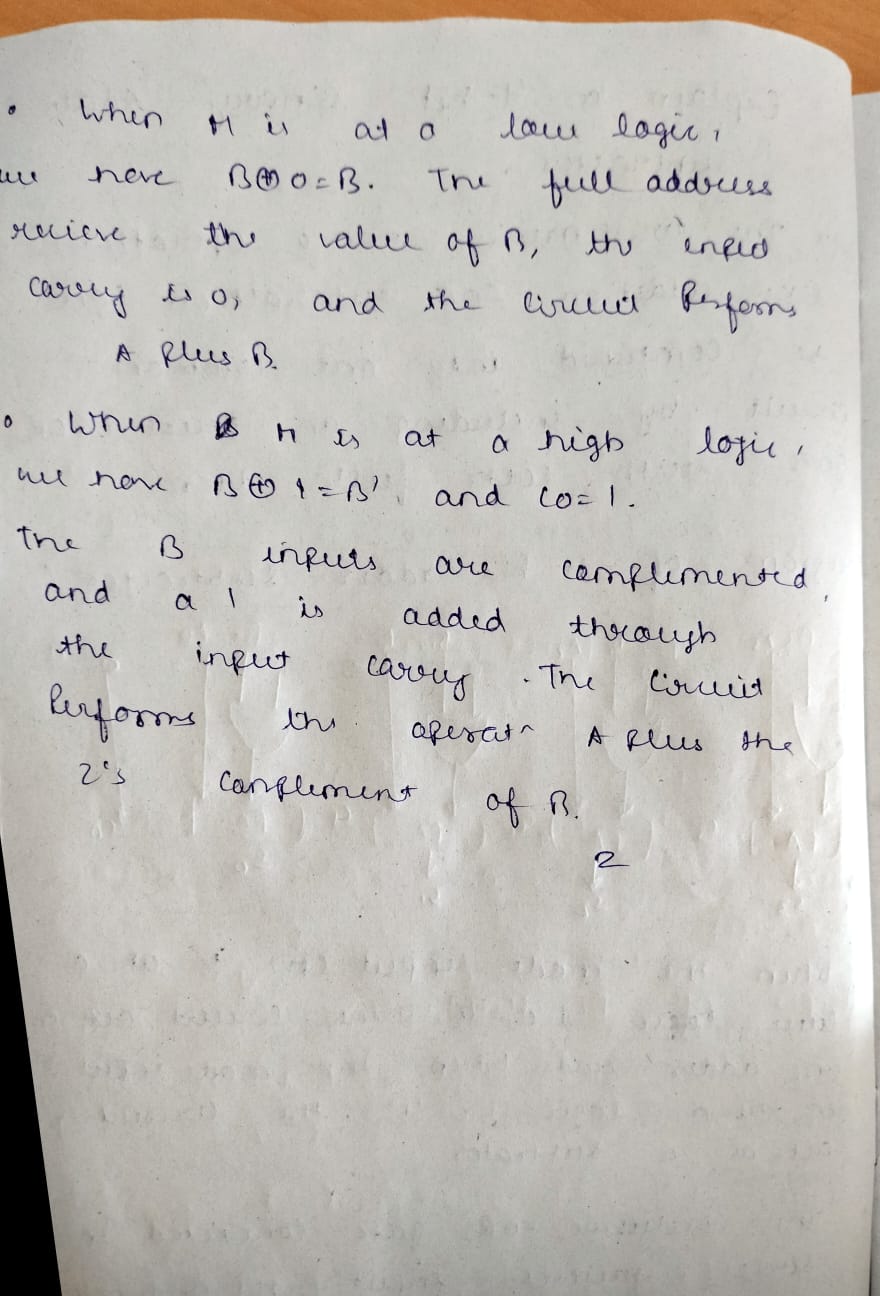 • When M is at a low logic,
we have B⊕0=B. The full address
recieve the value of B, the input
carry is 0, and the circuit Performs
A Plus B.
• When M is at a high logic,
we have B⊕1=B' and C0=1.
The B inputs are complemented,
and a 1 is added through
the input carry. The Circuit
Performs the operatn A Plus the
2's Complement of B.
2